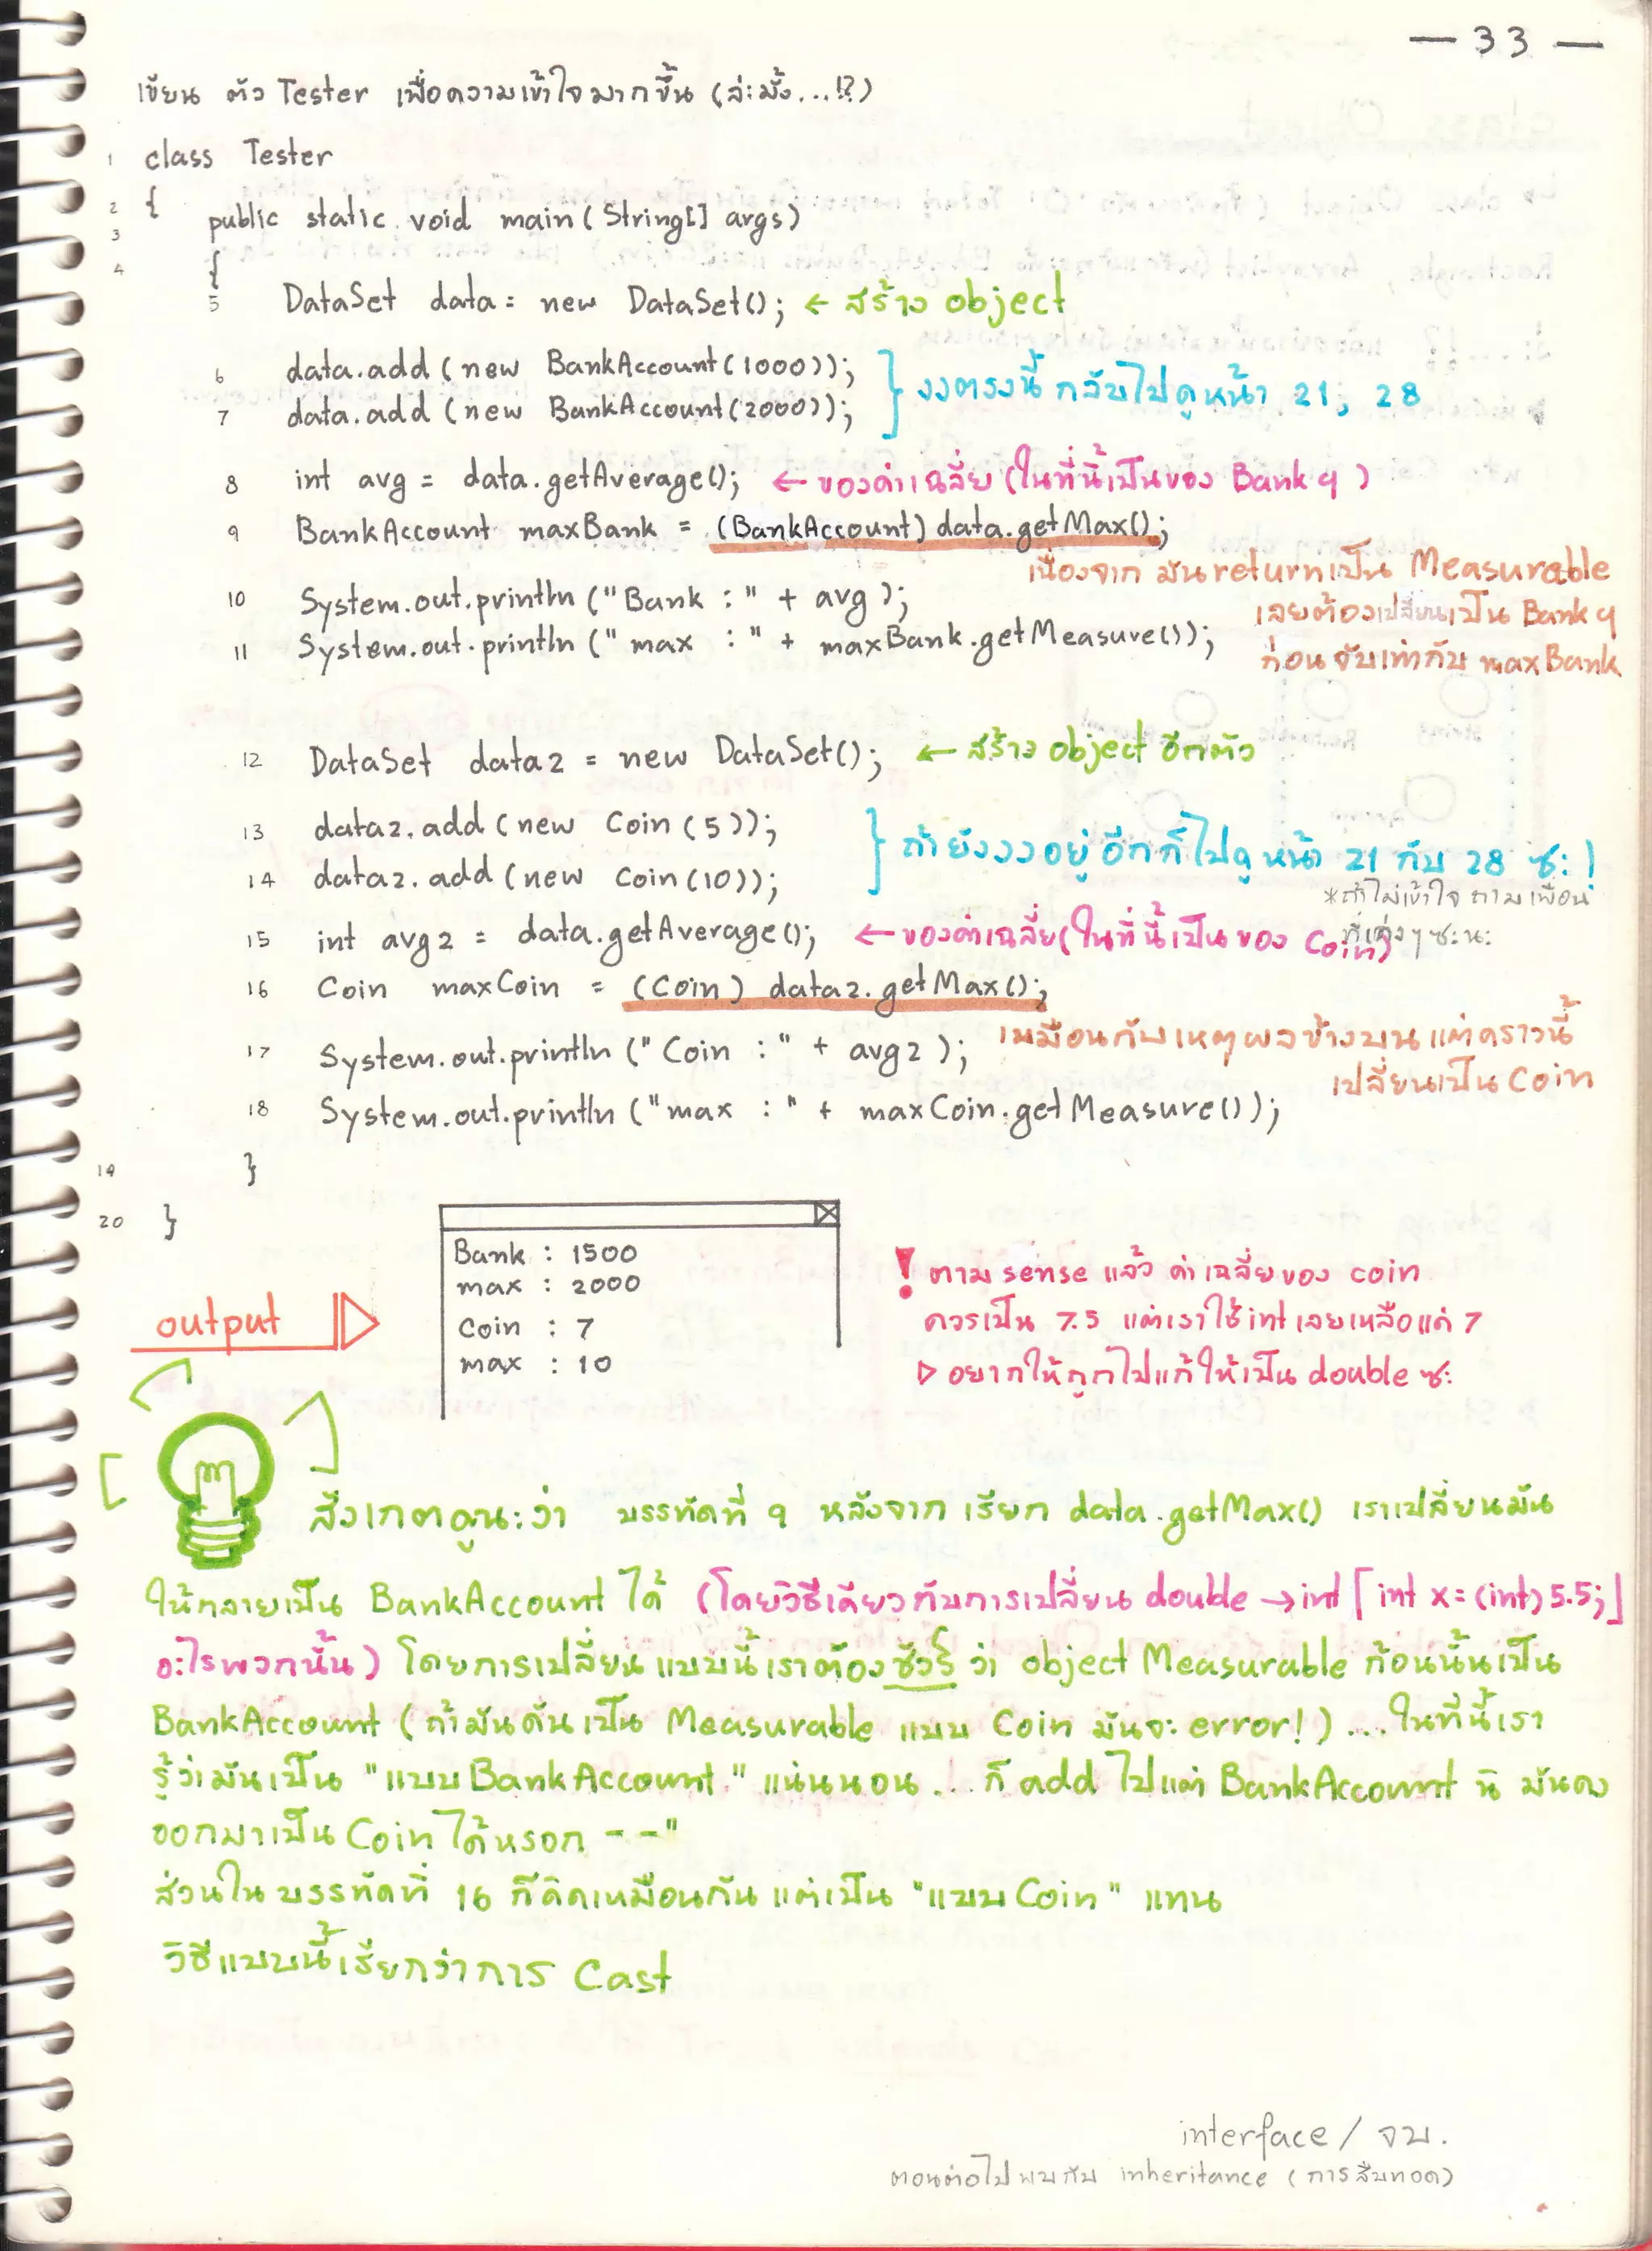 — 33 —
เขียน ตัว Tester เพื่อความเข้าใจมากขึ้น (ล่ะมั้ง...!?)
1 class Tester
2 {
3 public static void main(String[] args)
4 {
5 DataSet data = new DataSet(); ← สร้าง object
6 data.add(new BankAccount(1000));
7 data.add(new BankAccount(2000));
} งงตรงนี้ กลับไปดูหน้า 21, 28
8 int avg = data.getAverage(); ← ของค่าเฉลี่ย (ในที่นี้เป็นของ Bank ฯ)
9 BankAccount maxBank = (BankAccount) data.getMax();
เนื่องจาก มัน return เป็น Measurable
เลยต้องเปลี่ยนเป็น Bank ฯ
ก่อนจับเท่ากับ maxBank
10 System.out.println("Bank :" + avg);
11 System.out.println("max :" + maxBank.getMeasure());
12 DataSet data2 = new DataSet(); ← สร้าง object อีกตัว
13 data2.add(new Coin(5));
14 data2.add(new Coin(10));
} ถ้ายังงงอยู่อีกก็ไปดูหน้า 21 กับ 28 ซะ!
*ถ้าไม่เข้าใจ ถามเพื่อน
ที่เก่งๆซะนะ
15 int avg2 = data.getAverage(); ← ของค่าเฉลี่ย(ในที่นี้เป็นของ Coin)
16 Coin maxCoin = (Coin) data2.getMax();
17 System.out.println("Coin :" + avg2);
เหมือนกับเหตุผลข้างบนแต่คราวนี้
เปลี่ยนเป็น Coin
18 System.out.println("max :" + maxCoin.getMeasure());
19 }
20 }
output
Bank : 1500
max : 2000
Coin : 7
max : 10
! ตาม sense แล้ว ค่าเฉลี่ยของ coin
ควรเป็น 7.5 แต่เราใช้ int เลยเหลือแค่ 7
▷ อยากให้ถูกไปแก้ให้เป็น double ซะ
สังเกตดูนะว่า บรรทัดที่ 9 หลังจาก เรียก data.getMax() เราเปลี่ยนมัน
ให้กลายเป็น BankAccount ได้ (โดยวิธีเดียวกับการเปลี่ยน double → int [int x = (int) 5.5;]
อะไรพวกนั้น) โดยการเปลี่ยนแบบนี้เราต้องชัวร์ ว่า object Measurable ก้อนนั้นเป็น
BankAccount (ถ้ามันดันเป็น Measurable แบบ Coin มันจะ error!) ... ในที่นี้เรา
รู้ว่ามันเป็น "แบบ BankAccount" แน่นอน... ก็ add ไปแต่ BankAccount นิ มันคง
ออกมาเป็น Coin ได้หรอก --"
ส่วนใน บรรทัดที่ 16 ก็คิดเหมือนกัน แต่เป็น "แบบ Coin" แทน
วิธีแบบนี้เรียกว่าการ Cast
interface / จบ.
ตอนต่อไปพบกับ inheritance (การสืบทอด)